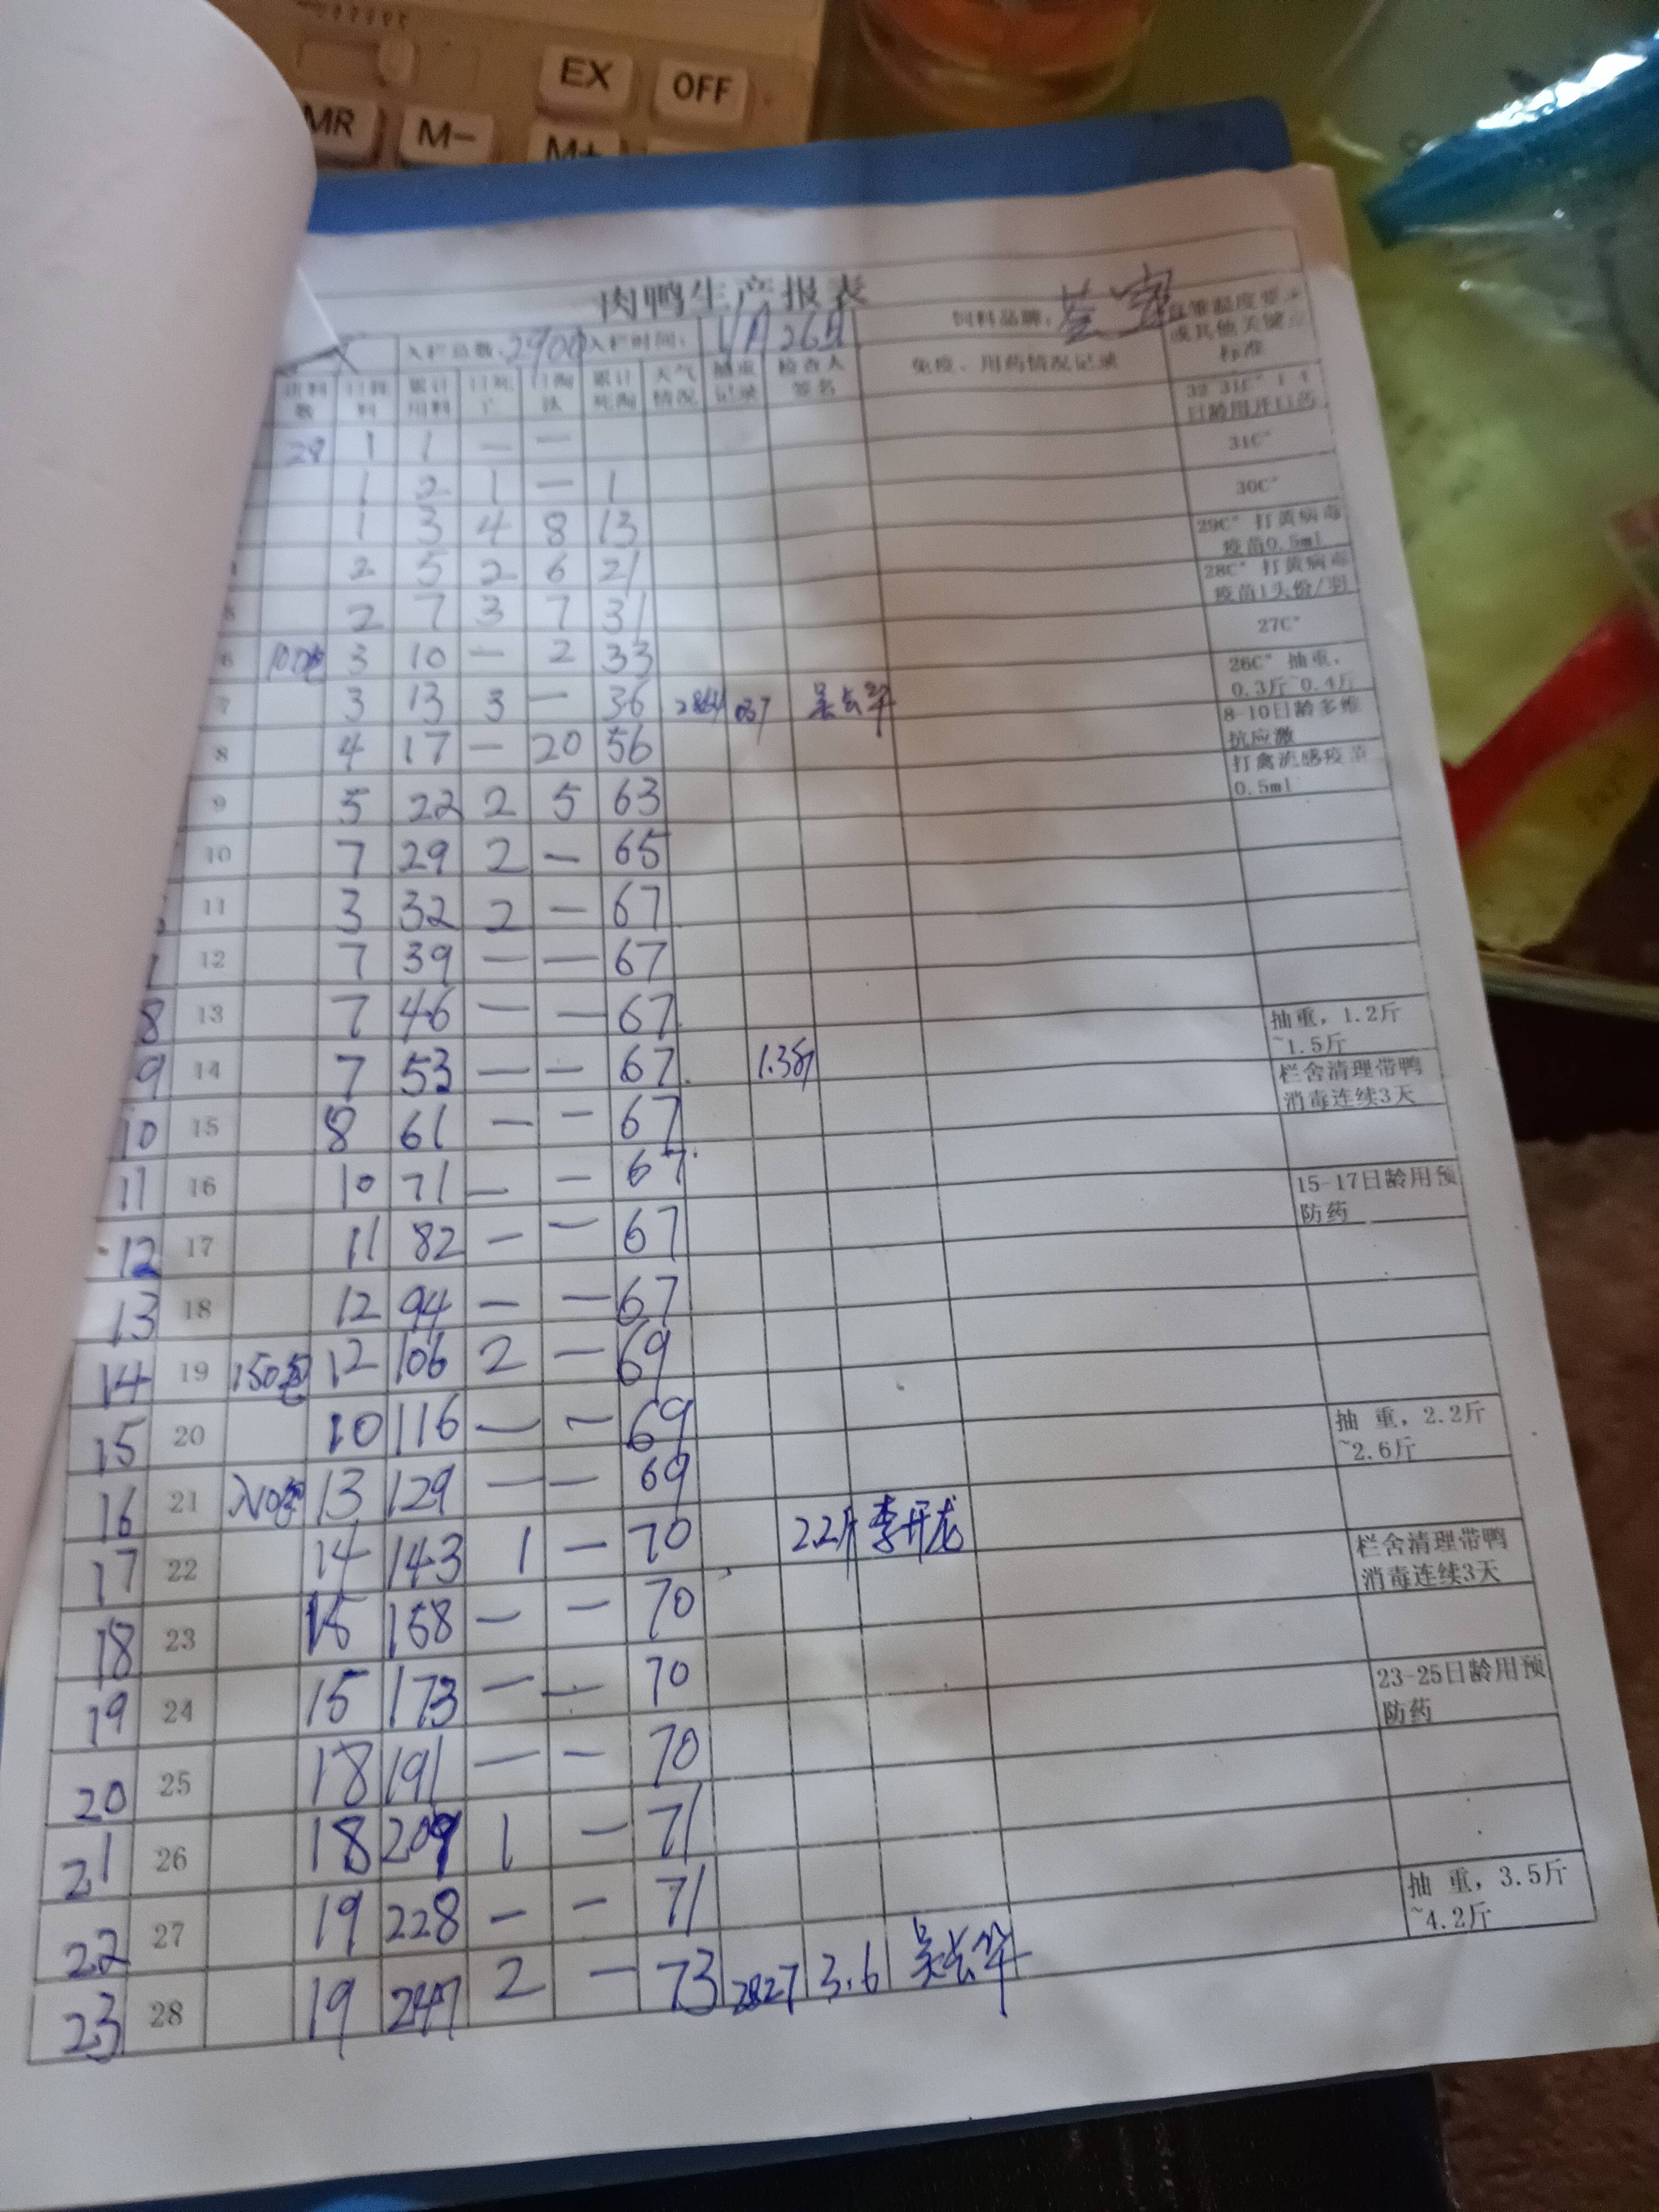 EX OFF
MR M- M+
肉鸭生产报表
入栏总数:2900 入栏时间: 26日 饲料品牌:
进料数 日耗料 累计用料 日死亡 日淘汰 累计死淘 天气情况 抽重记录 检查人签名 免疫、用药情况记录 育雏温度要求或其他关键点标准
32-31C°
日龄用开口药
28 1 1 — — 31C°
1 2 1 — 1 30C°
1 3 4 8 13 29C° 打黄病毒疫苗0.5ml
2 5 2 6 21 28C° 打黄病毒疫苗1头份/羽
5 2 7 3 7 31 27C°
6 100包 3 10 — 2 33 26C° 抽重,0.3斤~0.4斤
7 3 13 3 — 36 2864 037 8-10日龄多维抗应激
8 4 17 — 20 56 打禽流感疫苗0.5ml
9 5 22 2 5 63
10 7 29 2 — 65
11 3 32 2 — 67
12 7 39 — — 67
8 13 7 46 — — 67 抽重,1.2斤~1.5斤
9 14 7 53 — — 67 1.3斤 栏舍清理带鸭消毒连续3天
10 15 8 61 — — 67
11 16 10 71 — — 67 15-17日龄用预防药
12 17 11 82 — — 67
13 18 12 94 — — 67
14 19 150包 12 106 2 — 69
15 20 10 116 — — 69 抽 重,2.2斤~2.6斤
16 21 13 129 — — 69
17 22 14 143 1 — 70 2.2斤 李开龙 栏舍清理带鸭消毒连续3天
18 23 15 158 — — 70
19 24 15 173 — — 70 23-25日龄用预防药
20 25 18 191 — — 70
21 26 18 209 1 — 71
22 27 19 228 — — 71 抽 重,3.5斤~4.2斤
23 28 19 247 2 — 73 2827 3.6